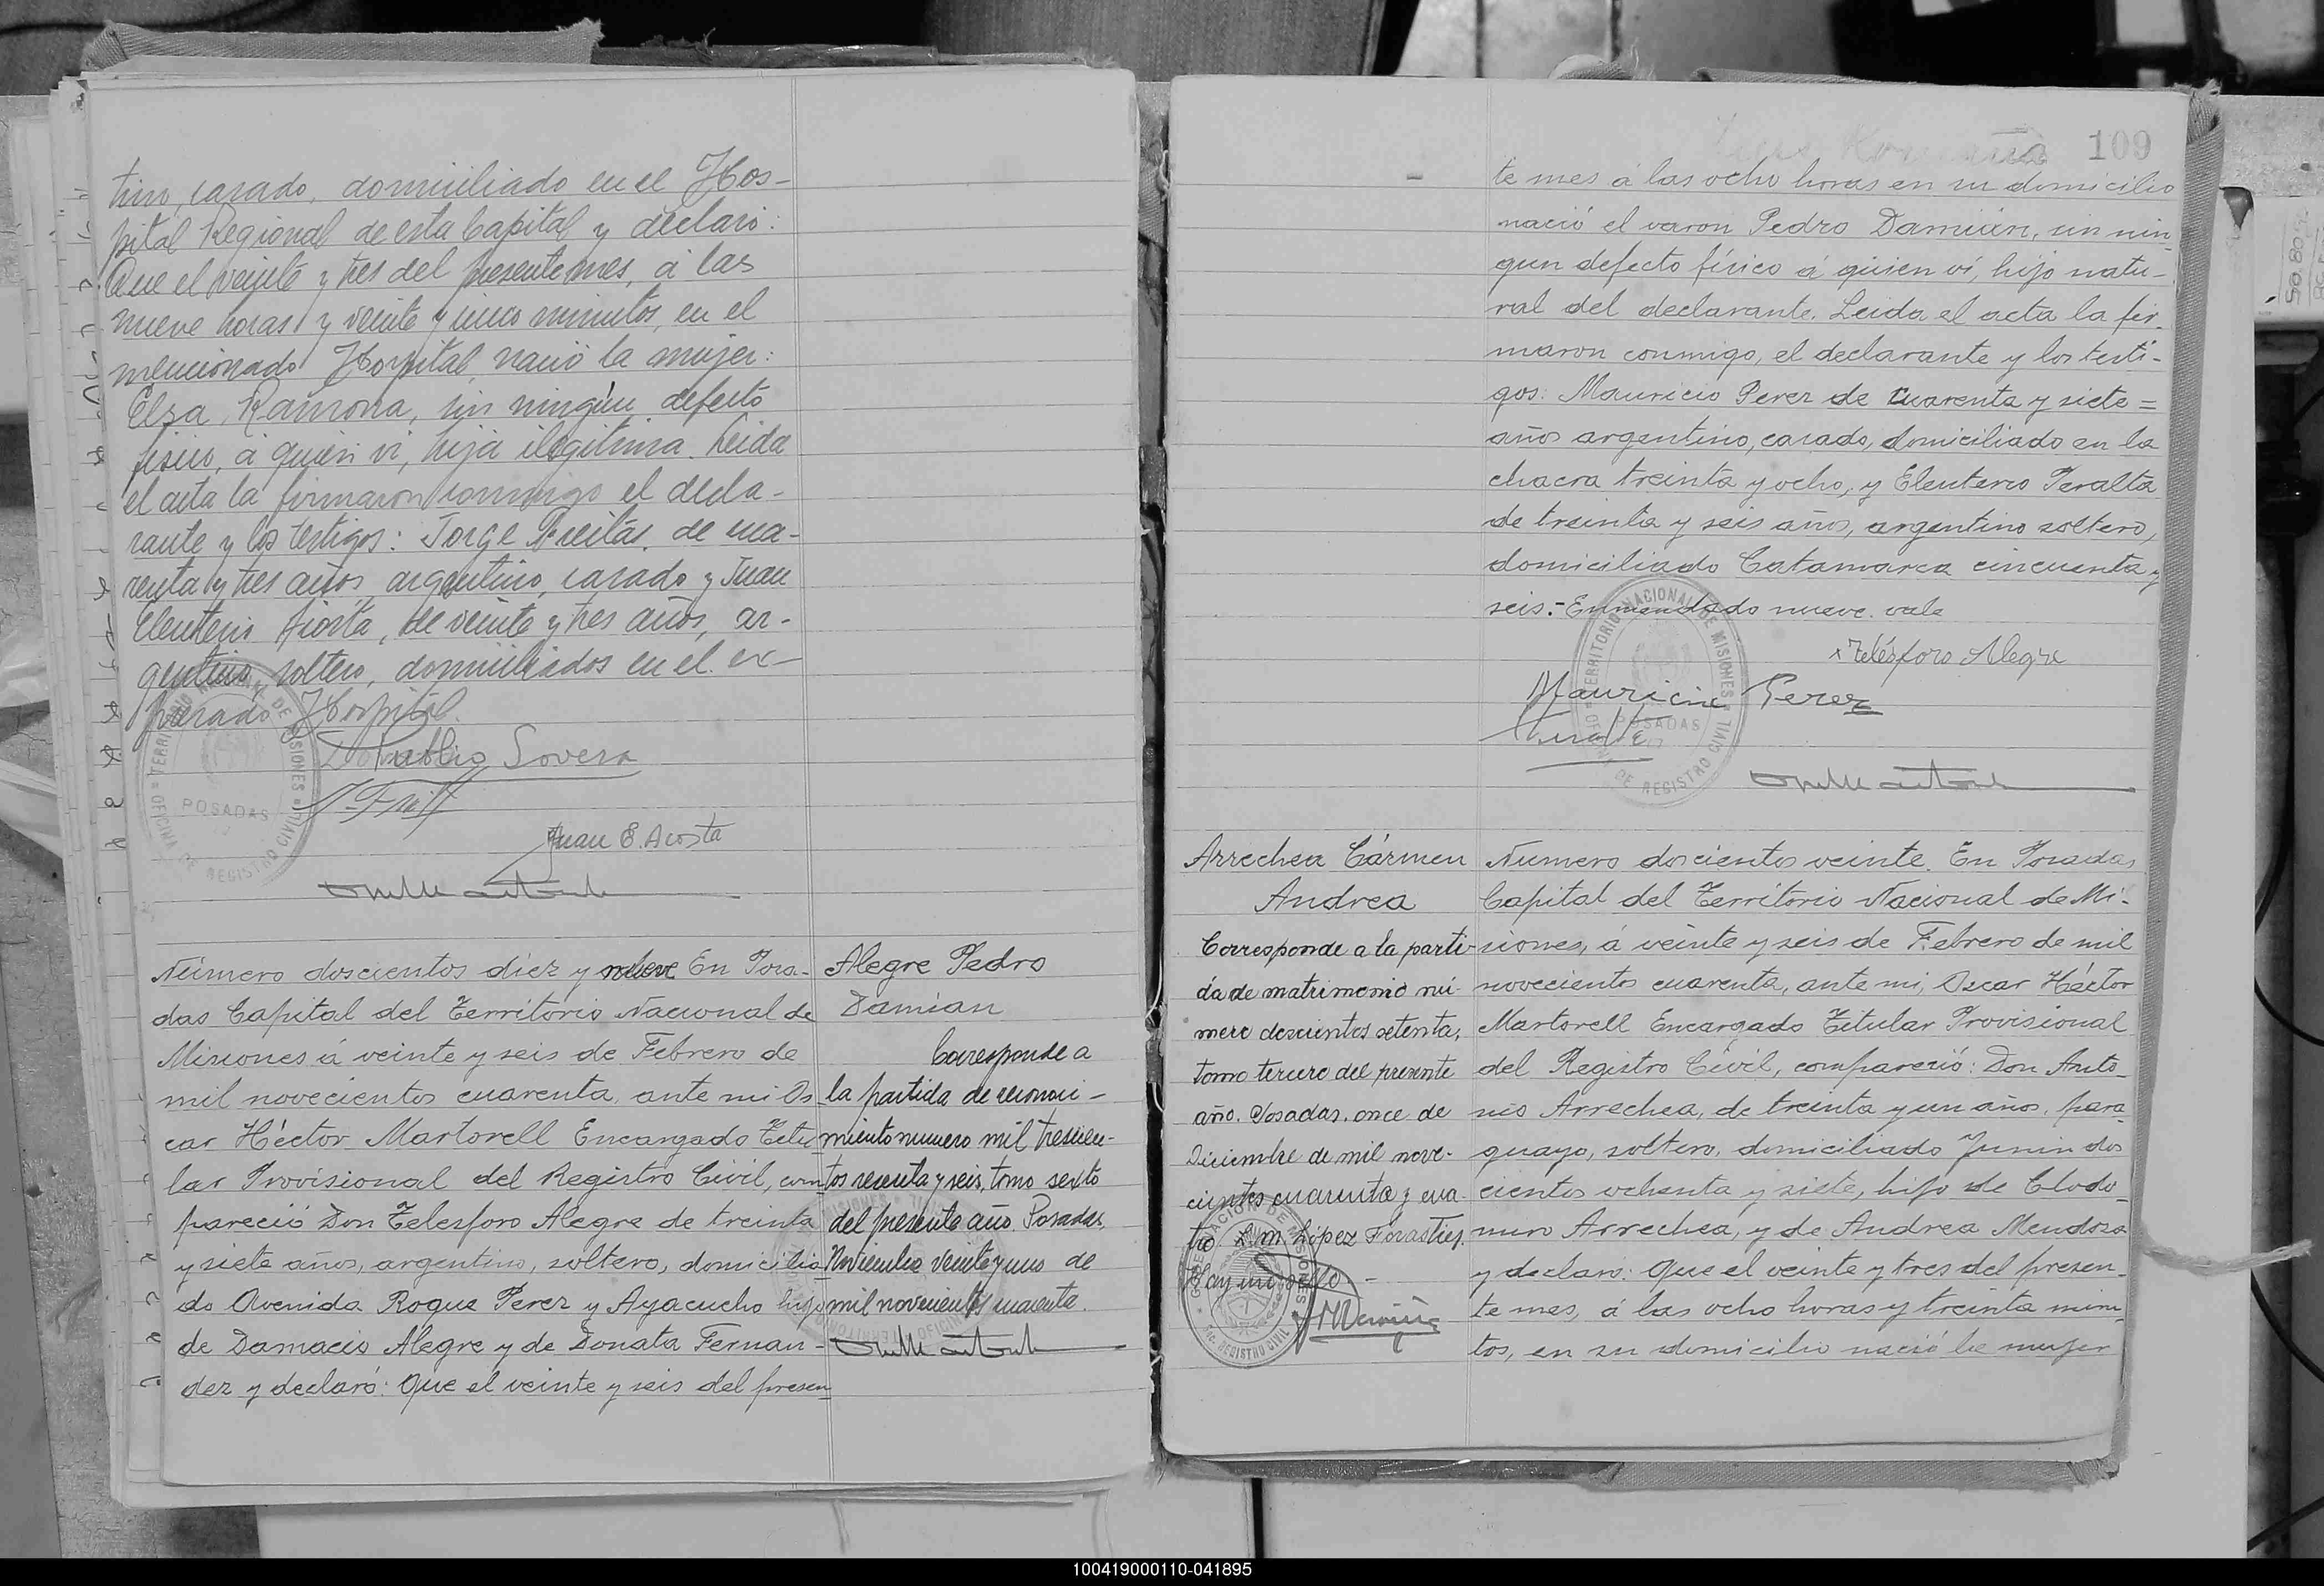 tino, casado, domiciliado en el Hos-
pital Regional de esta Capital y declaró:
Que el veinte y tres del presente mes, á las
nueve horas y veinte y cinco minutos, en el
mencionado Hospital, nació la mujer:
Elsa Ramona, sin ningún defecto
físico, á quien vi, hija ilegitima. Leida
el acta la firmaron conmigo el decla-
rante y los testigos: Jorge Freitas, de cua-
renta y tres años, argentino, casado y Juan
Eleuterio Acosta, de veinte y tres años, ar-
gentino, soltero, domiciliados en el ex-
presado Hospital.
Publio Sovera
J. Freit
Juan E. Acosta
TERRITORIO NACIONAL DE MISIONES
POSADAS
OFICINA DE REGISTRO CIVIL
Número doscientos diez y nueve En Posa-
das Capital del Territorio Nacional de
Misiones á veinte y seis de Febrero de
mil novecientos cuarenta, ante mi Os-
car Héctor Martorell Encargado Titu-
lar Provisional del Registro Civil, com-
pareció Don Telesforo Alegre de treinta
y siete años, argentino, soltero, domicilia-
do Avenida Roque Perez y Ayacucho hijo
de Damacio Alegre y de Donata Fernan-
dez y declaró: Que el veinte y seis del presen-
Alegre Pedro
Damian
Corresponde a
la partida de reconoci-
miento numero mil trescien-
tos sesenta y seis, tomo sexto
del presente año. Posadas,
Noviembre veinte y uno de
mil novecientos cuarenta.
109
te mes á las ocho horas en su domicilio
nació el varon Pedro Damián, sin nin-
gun defecto físico á quien ví, hijo natu-
ral del declarante. Leida el acta la fir-
maron conmigo, el declarante y los testi-
gos: Mauricio Perez de cuarenta y siete=
años argentino, casado, domiciliado en la
chacra treinta y ocho, y Eleuterio Peralta
de treinta y seis años, argentino soltero,
domiciliado Catamarca cincuenta y
seis.- Enmendado nueve. vale
x Telésforo Alegre
Mauricio Perez
TERRITORIO NACIONAL DE MISIONES
POSADAS
OFICINA DE REGISTRO CIVIL
Arrechea Cármen
Andrea
Corresponde a la parti-
da de matrimonio nú-
mero doscientos setenta,
tomo tercero del presente
año. Posadas, once de
Diciembre de mil nove-
cientos cuarenta y cua-
tro. L. M. López Forastier.
Hay un sello.-
GOBERNACION DE MISIONES
SEC. REGISTRO CIVIL
Numero doscientos veinte. En Posadas
Capital del Territorio Nacional de Mi-
siones, á veinte y seis de Febrero de mil
novecientos cuarenta, ante mi, Oscar Héctor
Martorell Encargado Titular Provisional
del Registro Civil, compareció: Don Anto-
nio Arrechea, de treinta y un años, para-
guayo, soltero, domiciliado Junin dos
cientos ochenta y siete, hijo de Clodo-
miro Arrechea, y de Andrea Mendoza
y declaro: Que el veinte y tres del presen-
te mes, á las ocho horas y treinta minu-
tos, en su domicilio nació la mujer
100419000110-041895